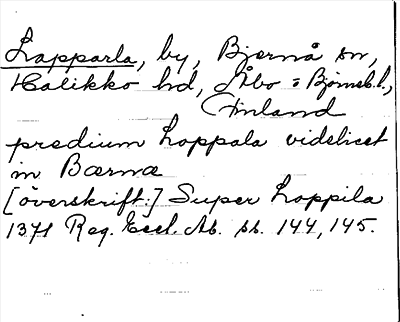 Lapparla, by, Bjernå sn,
Halikko hd, Åbo = Björneb. l.,
Finland
predium Loppala videlicet
in Bærnæ
[överskrift:] Super Loppila
1371 Reg. Eccl. Ab. ss. 144, 145.